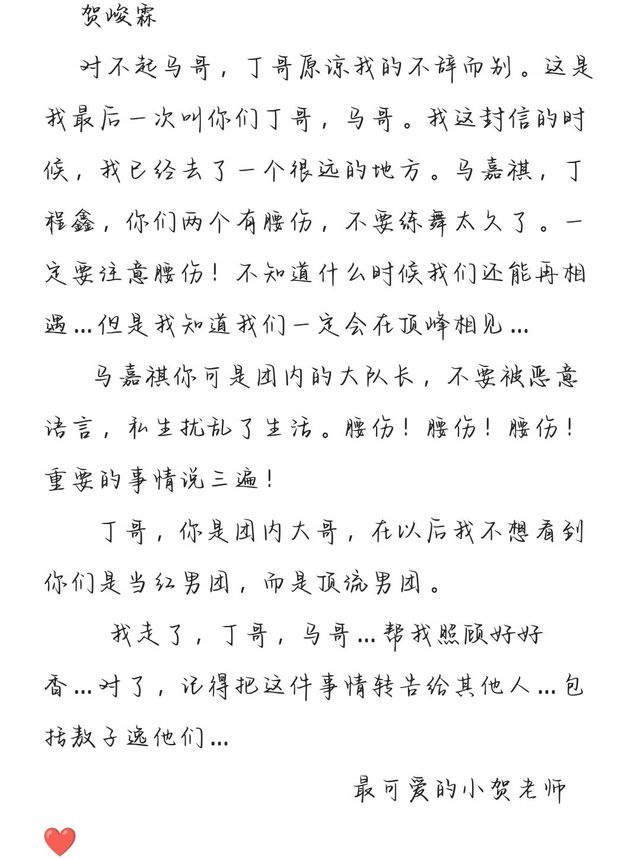 贺峻霖
对不起马哥，丁哥原谅我的不辞而别。这是
我最后一次叫你们丁哥，马哥。我这封信的时
候，我已经去了一个很远的地方。马嘉祺，丁
程鑫，你们两个有腰伤，不要练舞太久了。一
定要注意腰伤！不知道什么时候我们还能再相
遇...但是我知道我们一定会在顶峰相见...
马嘉祺你可是团内的大队长，不要被恶意
语言，私生扰乱了生活。腰伤！腰伤！腰伤！
重要的事情说三遍！
丁哥，你是团内大哥，在以后我不想看到
你们是当红男团，而是顶流男团。
我走了，丁哥，马哥...帮我照顾好好
香...对了，记得把这件事情转告给其他人...包
括敖子逸他们...
最可爱的小贺老师